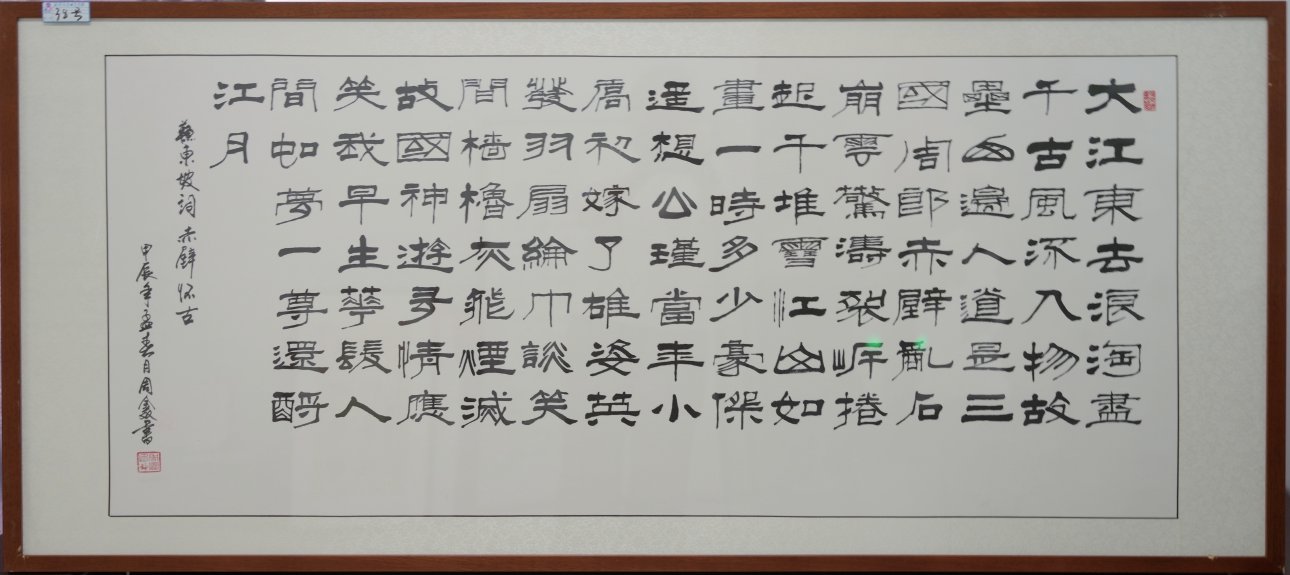 大江東去浪淘盡
千古風流人物故
壘西邊人道是三
國周郎赤壁亂石
崩雲驚濤裂岸捲
起千堆雪江山如
畫一時多少豪傑
遥想公瑾當年小
喬初嫁了雄姿英
發羽扇綸巾談笑
間檣櫓灰飛煙滅
故國神遊多情應
笑我早生華髮人
間如夢一尊還酹
江月
蘇東坡詞赤壁怀古
甲辰年孟春月周鑫書